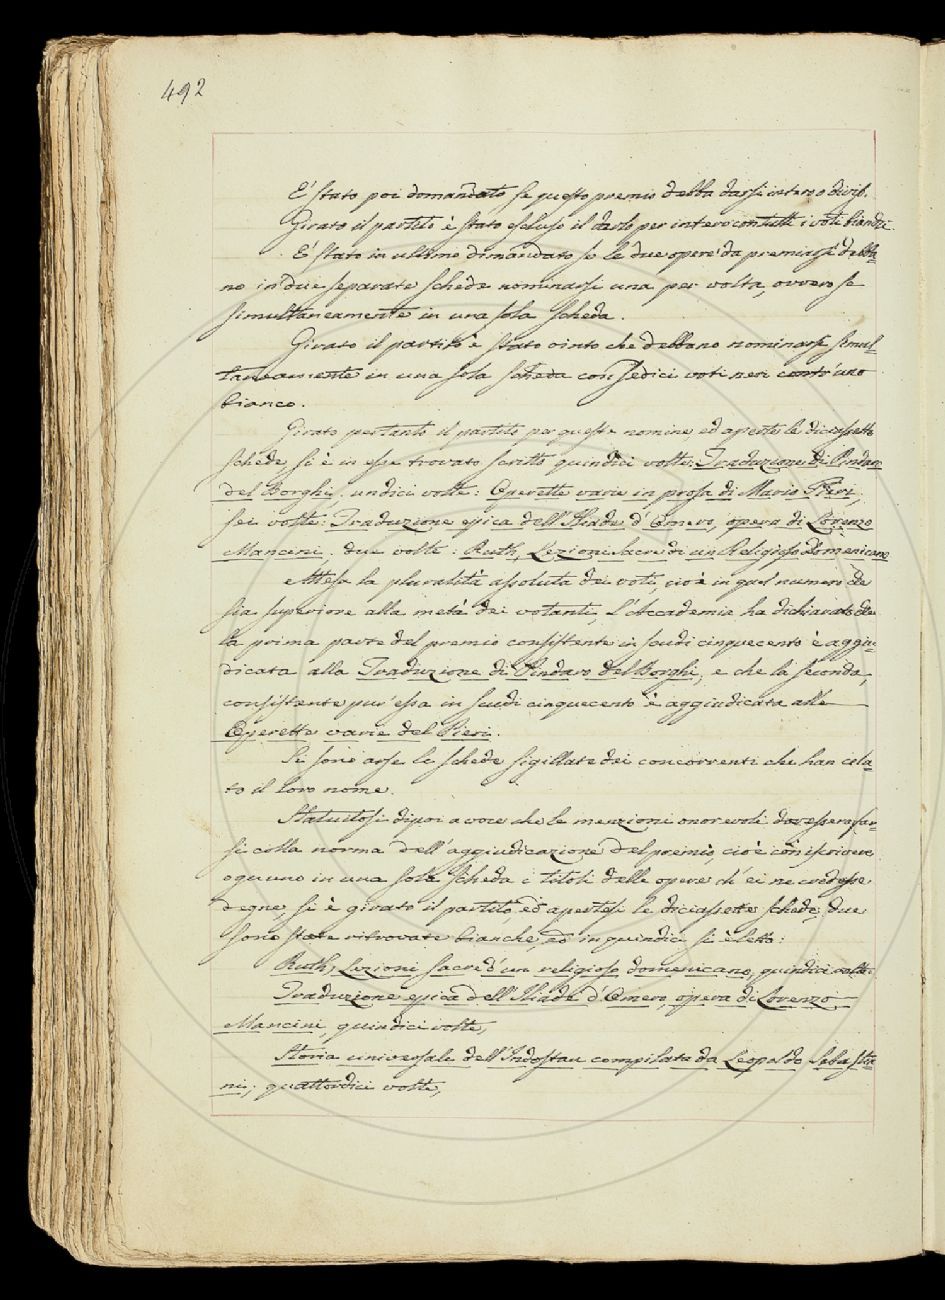 492
È stato poi domandato, se questo premio debba darsi intero o divis.
Girato il partito è stato escluso il darlo per intero con tutti i voti bianchi.
È stato in ultimo dimandato se le due opere da premiarsi debba-
no in due separate schede nominarsi una per volta, ovvero se
simultaneamente in una sola scheda.
Girato il partito è stato vinto che debbano nominarsi simul-
taneamente in una sola scheda con sedici voti neri contr'uno
bianco.
Girato pertanto il partito per queste nomine ed aperte le diciassette
schede, si è in esse trovato scritto quindici volte: Traduzione di Pindaro
del Borghi, undici volte: Operette varie in prosa di Mario Pieri,
sei volte: Traduzione epica dell'Iliade d'Omero, opera di Lorenzo
Mancini, due volte: Ruth, Lezioni Sacre di un Religioso Domenicano
Attesa la pluralità assoluta dei voti, cioè in quel numero che
sia superiore alla metà dei votanti, l'Accademia ha dichiarato che
la prima parte del premio consistente in scudi cinquecento è aggiu-
dicata alla Traduzione di Pindaro del Borghi, e che la seconda,
consistente pur essa in scudi cinquecento è aggiudicata alle
Operette varie del Pieri.
Si sono arse le schede sigillate dei concorrenti che han cela-
to il loro nome.
Statuitosi dipoi a voce che le menzioni onorevoli dovessero far-
si colla norma dell'aggiudicazione del premio, cioè con iscrivere
ognuno in una sola scheda i titoli delle opere ch'ei ne credesse
degne, si è girato il partito, ed apertesi le diciassette schede, due
sono state ritrovate bianche, ed in quindici si è letto:
Ruth, Lezioni sacre d'un religioso domenicano, quindici volte.
Traduzione epica dell'Iliade d'Omero, opera di Lorenzo
Mancini, quindici volte,
Storia universale dell'Indostan compilata da Leopoldo Sebastia-
ni, quattordici volte,